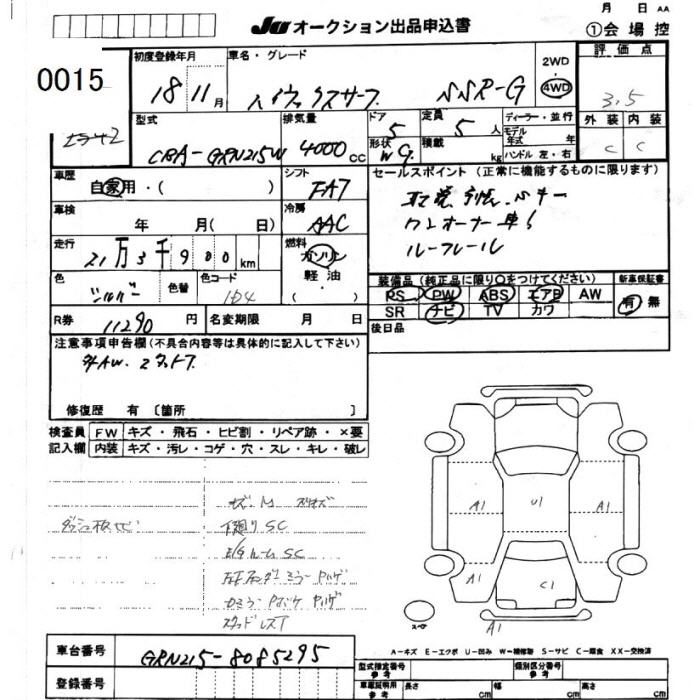 月 日 AA
Ju オークション出品申込書
①会場控
0015
初度登録年月
18 11月
車名・グレード
ハイラックスサーフ SSR-G
2WD
4WD
評価点
3.5
外装 内装
C C
型式
CBA-GRN215W
排気量
4000 cc
ドア
5
形状
W G
定員
5 人
積載
kg
ディーラー・並行
モデル年式 年
ハンドル 左・右
車歴
自家用・( )
シフト
FAT
セールスポイント (正常に機能するものに限ります)
ワンオーナー車
ルーフレール
車検
年 月( 日)
冷房
AAC
走行
21万3千900km
燃料
ガソリン
軽油
( )
色
シルバー
色替
色コード
1D4
装備品 (純正品に限り○をつけてください)
PS PW ABS エアB AW
SR ナビ TV カワ
新車保証書
有 無
R券
11290円
名変期限 月 日
後日品
注意事項申告欄 (不具合内容等は具体的に記入して下さい)
外AW.
修復歴 有 [箇所 ]
検査員記入欄
FW キズ・飛石・ヒビ割・リペア跡・×要
内装 キズ・汚レ・コゲ・穴・スレ・キレ・破レ
下廻りSC
スタッドレスT
A1 U1 A1
A1 C1
スペア
A1
A-キズ E-エクボ U-凹み W-補修跡 S-サビ C-腐食 XX-交換済
車台番号
GRN215-8085295
登録番号
型式指定番号 参考
類別区分番号 参考
車庫証明用 参考
長さ cm
幅 cm
高さ cm